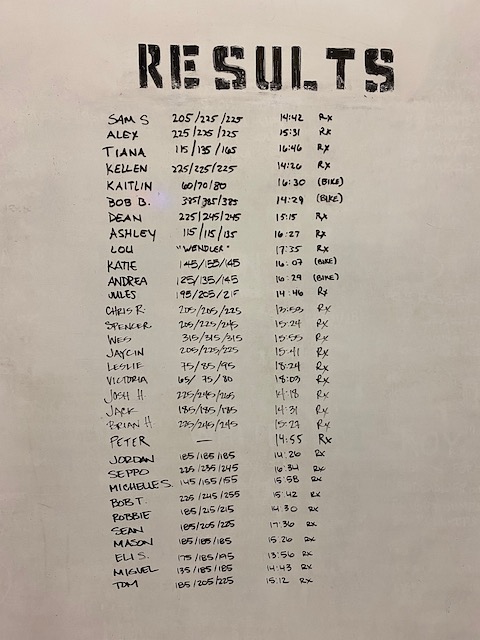 RESULTS
SAM S 205/225/225 14:42 RX
ALEX 225/225/225 15:31 RX
TIANA 115/135/165 16:46 RX
KELLEN 225/225/225 14:26 RX
KAITLIN 60/70/80 16:30 (BIKE)
BOB B. 385/385/385 14:29 (BIKE)
DEAN 225/245/245 15:15 RX
ASHLEY 115/115/135 16:27 RX
LOU "WENDLER" 17:35 RX
KATIE 145/155/145 16:07 (BIKE)
ANDREA 125/135/145 16:29 (BIKE)
JULES 195/205/215 14:46 RX
CHRIS R. 205/205/225 13:53 RX
SPENCER 205/225/245 15:24 RX
WES 315/315/315 15:55 RX
JAYCIN 205/225/225 15:41 RX
LESLIE 75/85/95 18:24 RX
VICTORIA 65/75/80 18:03 RX
JOSH H. 225/245/265 14:18 RX
JACK 185/185/185 14:31 RX
BRIAN H 225/245/245 15:27 RX
PETER — 14:55 RX
JORDAN 185/185/185 14:26 RX
SEPPO 225/235/245 16:34 RX
MICHELLE S. 145/155/155 15:58 RX
BOB T. 225/245/255 15:42 RX
ROBBIE 185/215/215 14:30 RX
SEAN 185/205/225 17:36 RX
MASON 185/185/185 15:26 RX
ELI S. 175/185/195 13:56 RX
MIGUEL 135/185/185 14:43 RX
TOM 185/205/225 15:12 RX